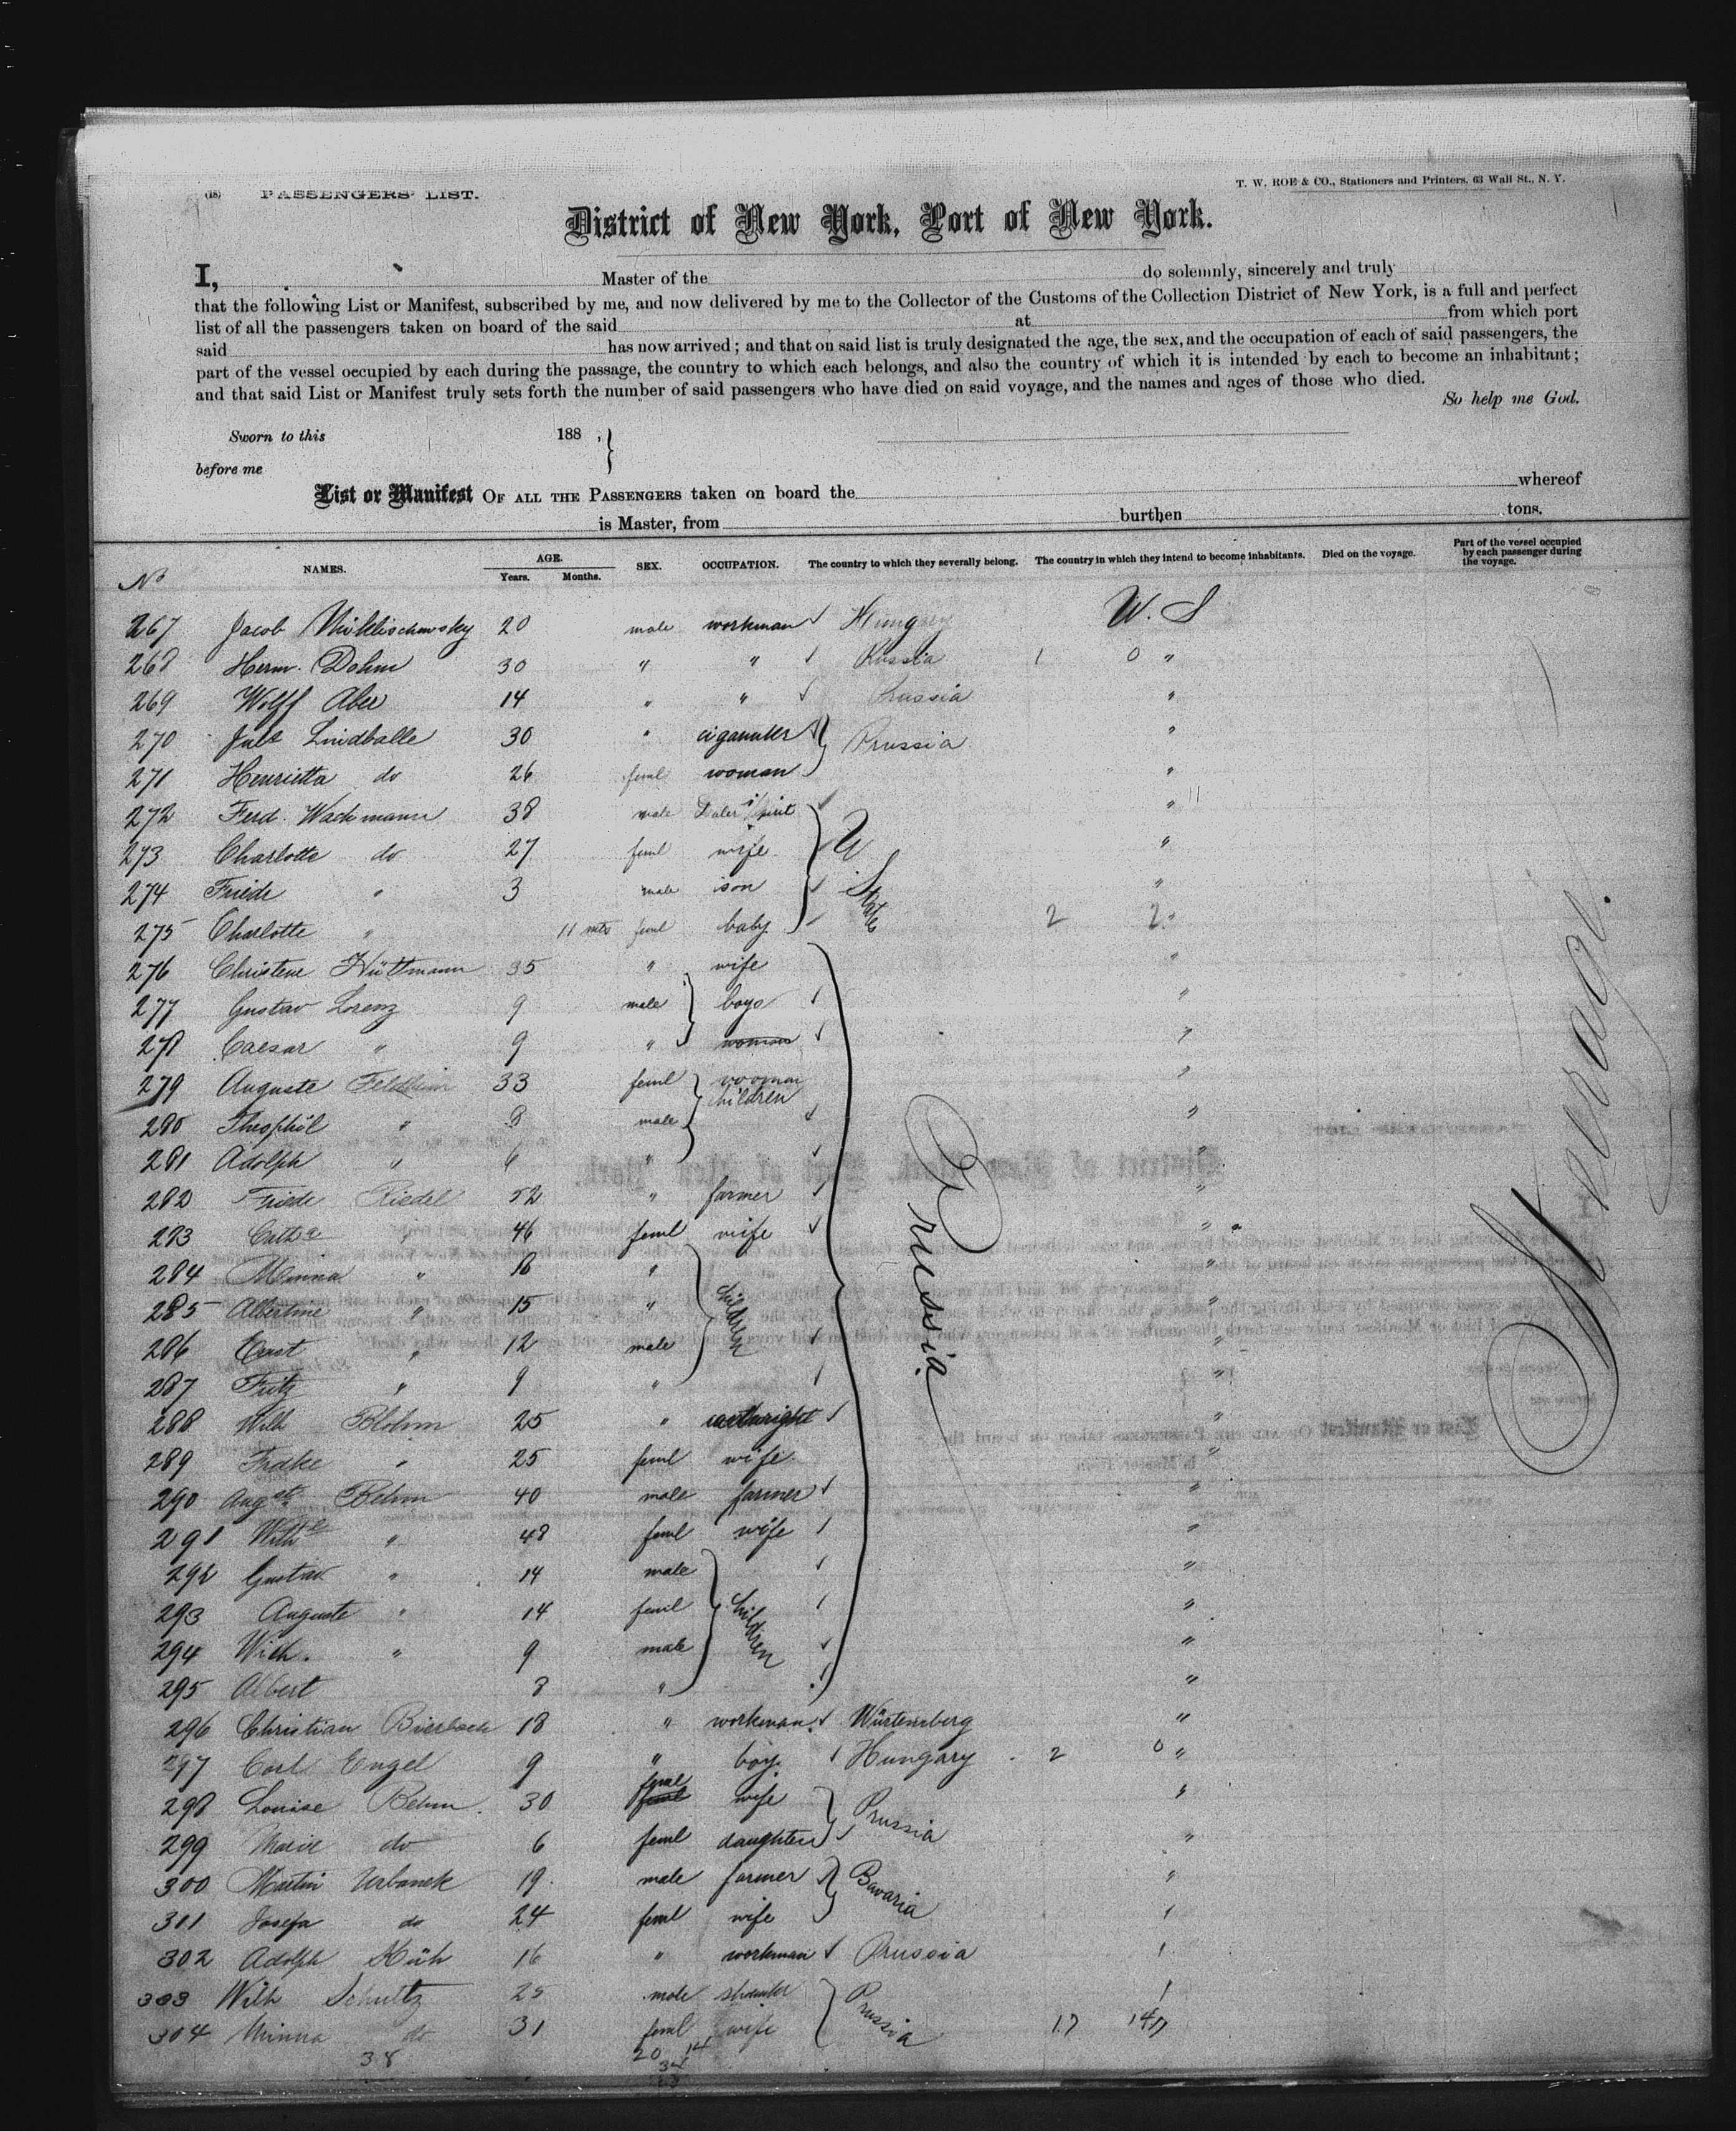 (18) PASSENGERS' LIST.
T. W. ROE & CO., Stationers and Printers, 63 Wall St., N. Y.
District of New York, Port of New York.
I, Master of the do solemnly, sincerely and truly
that the following List or Manifest, subscribed by me, and now delivered by me to the Collector of the Customs of the Collection District of New York, is a full and perfect
list of all the passengers taken on board of the said at from which port
said has now arrived; and that on said list is truly designated the age, the sex, and the occupation of each of said passengers, the
part of the vessel occupied by each during the passage, the country to which each belongs, and also the country of which it is intended by each to become an inhabitant;
and that said List or Manifest truly sets forth the number of said passengers who have died on said voyage, and the names and ages of those who died.
So help me God.
Sworn to this 188 ,
before me
List or Manifest OF ALL THE PASSENGERS taken on board the whereof
is Master, from burthen tons.
No NAMES. AGE. Years. Months. SEX. OCCUPATION. The country to which they severally belong. The country in which they intend to become inhabitants. Died on the voyage. Part of the vessel occupied by each passenger during the voyage.
267 Jacob 20 male workman Hungary U. S
268 Herm. Dohm 30 " " Russia 1 0 "
269 Wolff Aber 14 " " "
270 Jul Lindballe 30 " Prussia "
271 Henrietta do 26 feml woman "
272 Ferd. Wachmann 38 male " 11
273 Charlotte do 27 feml wife U "
274 Friede " 3 male son "
275 Charlotte " 11 mts feml baby 2 2 "
276 Christene Hüttmann 35 " wife "
277 Gustav Lorenz 9 male boys "
278 Caesar " 9 " woman "
279 Auguste 33 feml woman "
280 Theophil " 8 male children "
281 Adolph " 6 " "
282 Friede Riedel 52 " farmer "
283 Cath " 46 feml wife Prussia "
284 Minna " 18 " "
285 Albertine " 15 " children "
286 Ernst " 12 male "
287 Fritz " 9 " "
288 Wilh Blohm 25 " "
289 Fredke " 25 feml wife "
290 Augst Behm 40 male farmer "
291 Wilhe " 48 feml wife "
292 Gustav " 14 male "
293 Auguste " 14 feml children "
294 Wilh. " 9 male "
295 Albert 8 " "
296 Christian Bierbach 18 " workman Würtemberg "
297 Carl Engel 9 " boy Hungary 2 0 "
298 Louise Behm 30 feml wife Prussia "
299 Marie do 6 feml daughter "
300 Martin Urbanek 19 male farmer Bavaria "
301 Josefa do 24 feml wife
302 Adolph Küh 16 " workman Prussia
303 Wilh Schultz 25 male Prussia
304 Minna do 31 feml wife 17 14
38 20 14
34
Steerage.